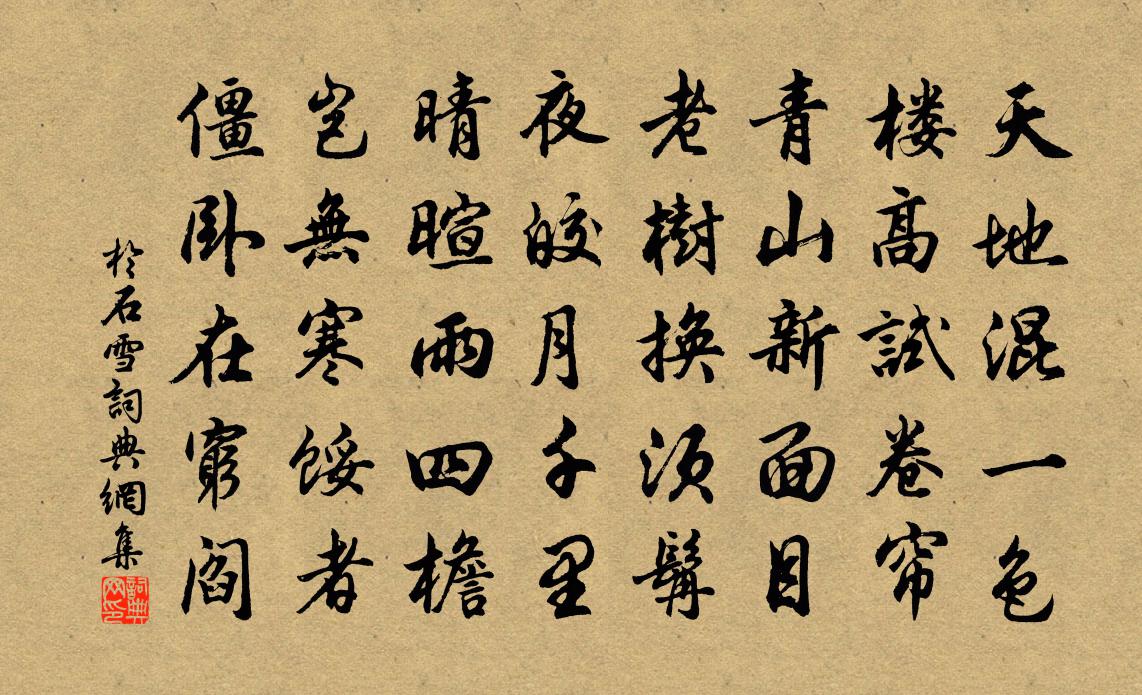 天地混一色
楼高試卷帘
青山新面目
老樹換須髯
夜皎月千里
晴暄雨四檐
岂無寒餒者
僵卧在窮阎
於石雪詞典網集
詞典网印